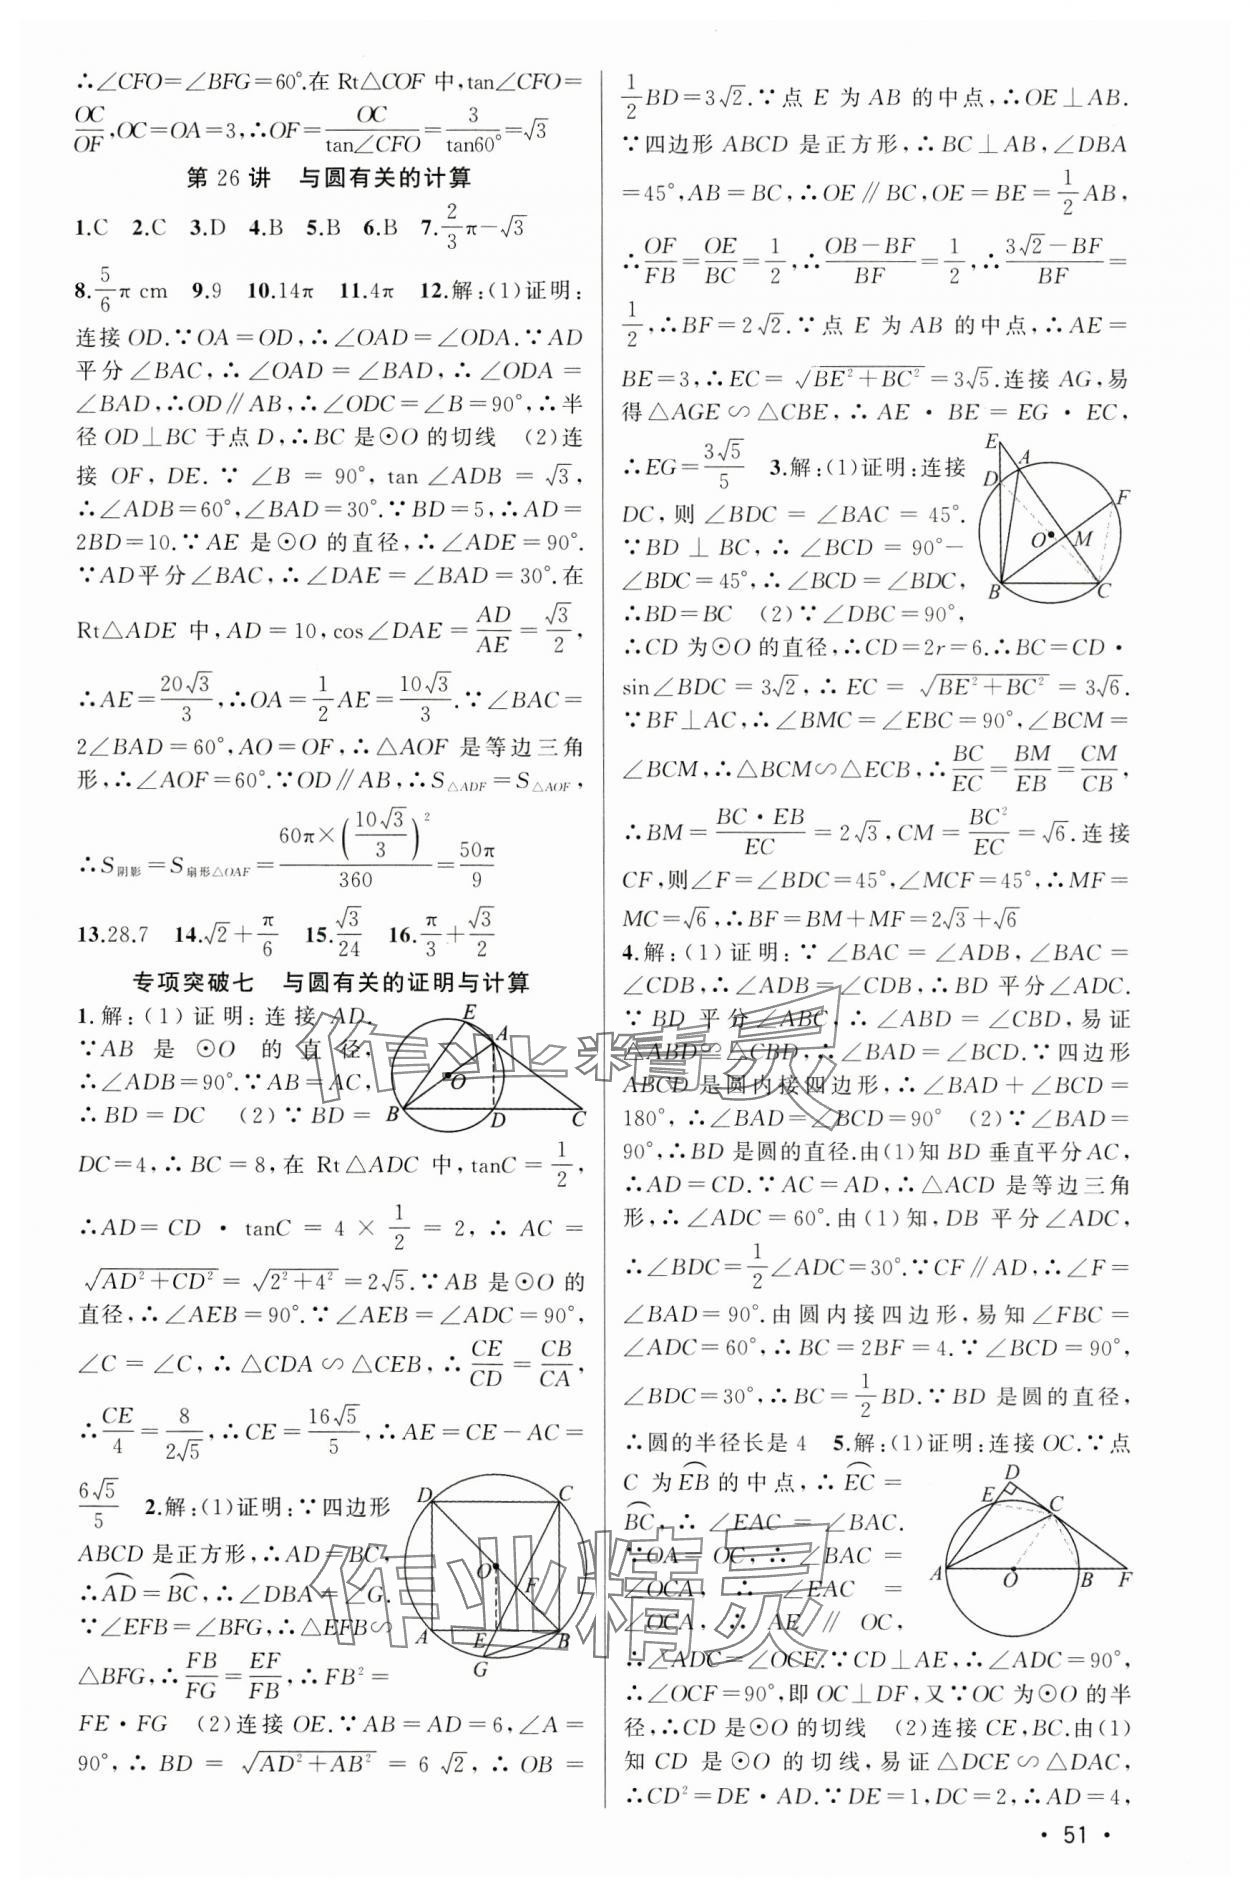 ∴∠CFO=∠BFG=60°.在 Rt△COF 中,tan∠CFO=
OC/OF,OC=OA=3,∴OF=OC/tan∠CFO=3/tan60°=√3
第 26 讲　与圆有关的计算
1.C　2.C　3.D　4.B　5.B　6.B　7.2/3π-√3
8.5/6π cm　9.9　10.14π　11.4π　12.解:(1)证明:
连接 OD.∵OA=OD,∴∠OAD=∠ODA.∵AD
平分∠BAC,∴∠OAD=∠BAD,∴∠ODA=
∠BAD,∴OD∥AB,∴∠ODC=∠B=90°,∴半
径 OD⊥BC 于点 D,∴BC 是⊙O 的切线　(2)连
接 OF, DE.∵∠B=90°,tan∠ADB=√3,
∴∠ADB=60°,∠BAD=30°.∵BD=5,∴AD=
2BD=10.∵AE 是⊙O 的直径,∴∠ADE=90°.
∵AD平分∠BAC,∴∠DAE=∠BAD=30°.在
Rt△ADE 中,AD=10,cos∠DAE=AD/AE=√3/2,
∴AE=20√3/3,∴OA=1/2AE=10√3/3.∵∠BAC=
2∠BAD=60°,AO=OF,∴△AOF 是等边三角
形,∴∠AOF=60°.∵OD∥AB,∴S△ADF=S△AOF,
∴S阴影=S扇形△OAF=60π×(10√3/3)²/360=50π/9
13.28.7　14.√2+π/6　15.√3/24　16.π/3+√3/2
专项突破七　与圆有关的证明与计算
1.解:(1)证明:连接 AD.
∵AB 是 ⊙O 的直径,
∴∠ADB=90°.∵AB=AC,
∴BD=DC　(2)∵BD=
DC=4,∴BC=8,在 Rt△ADC 中,tanC=1/2,
∴AD=CD·tanC=4×1/2=2,∴AC=
√(AD²+CD²)=√(2²+4²)=2√5.∵AB 是⊙O 的
直径,∴∠AEB=90°.∵∠AEB=∠ADC=90°,
∠C=∠C,∴△CDA∽△CEB,∴CE/CD=CB/CA,
∴CE/4=8/2√5,∴CE=16√5/5,∴AE=CE-AC=
6√5/5　2.解:(1)证明:∵四边形
ABCD 是正方形,∴AD=BC,
∴⌒AD=⌒BC,∴∠DBA=∠G.
∵∠EFB=∠BFG,∴△EFB∽
△BFG,∴FB/FG=EF/FB,∴FB²=
FE·FG　(2)连接 OE.∵AB=AD=6,∠A=
90°,∴BD=√(AD²+AB²)=6√2,∴OB=
1/2BD=3√2.∵点 E 为 AB 的中点,∴OE⊥AB.
∵四边形 ABCD 是正方形,∴BC⊥AB,∠DBA
=45°,AB=BC,∴OE∥BC,OE=BE=1/2AB,
∴OF/FB=OE/BC=1/2,∴OB-BF/BF=1/2,∴3√2-BF/BF=
1/2,∴BF=2√2.∵点 E 为 AB 的中点,∴AE=
BE=3,∴EC=√(BE²+BC²)=3√5.连接 AG,易
得△AGE∽△CBE,∴AE·BE=EG·EC,
∴EG=3√5/5　3.解:(1)证明:连接
DC,则∠BDC=∠BAC=45°.
∵BD⊥BC,∴∠BCD=90°-
∠BDC=45°,∴∠BCD=∠BDC,
∴BD=BC　(2)∵∠DBC=90°,
∴CD 为⊙O 的直径,∴CD=2r=6.∴BC=CD·
sin∠BDC=3√2,∴EC=√(BE²+BC²)=3√6.
∵BF⊥AC,∴∠BMC=∠EBC=90°,∠BCM=
∠BCM,∴△BCM∽△ECB,∴BC/EC=BM/EB=CM/CB,
∴BM=BC·EB/EC=2√3,CM=BC²/EC=√6.连接
CF,则∠F=∠BDC=45°,∠MCF=45°,∴MF=
MC=√6,∴BF=BM+MF=2√3+√6
4.解:(1)证明:∵∠BAC=∠ADB,∠BAC=
∠CDB,∴∠ADB=∠CDB,∴BD 平分∠ADC.
∵BD 平分∠ABC,∴∠ABD=∠CBD,易证
△ABD∽△CBD,∴∠BAD=∠BCD.∵四边形
ABCD 是圆内接四边形,∴∠BAD+∠BCD=
180°,∴∠BAD=∠BCD=90°　(2)∵∠BAD=
90°,∴BD 是圆的直径.由(1)知 BD 垂直平分 AC,
∴AD=CD.∵AC=AD,∴△ACD 是等边三角
形,∴∠ADC=60°.由(1)知,DB 平分∠ADC,
∴∠BDC=1/2∠ADC=30°.∵CF∥AD,∴∠F=
∠BAD=90°.由圆内接四边形,易知∠FBC=
∠ADC=60°,∴BC=2BF=4.∵∠BCD=90°,
∠BDC=30°,∴BC=1/2BD.∵BD 是圆的直径,
∴圆的半径长是 4　5.解:(1)证明:连接 OC.∵点
C 为⌒EB 的中点,∴⌒EC=
⌒BC,∴∠EAC=∠BAC.
∵OA=OC,∴∠BAC=
∠OCA,∴∠EAC=
∠OCA,∴AE∥OC,
∴∠ADC=∠OCF.∵CD⊥AE,∴∠ADC=90°,
∴∠OCF=90°,即 OC⊥DF,又∵OC 为⊙O 的半
径,∴CD 是⊙O 的切线　(2)连接 CE,BC.由(1)
知 CD 是⊙O 的切线,易证△DCE∽△DAC,
∴CD²=DE·AD.∵DE=1,DC=2,∴AD=4,
· 51 ·